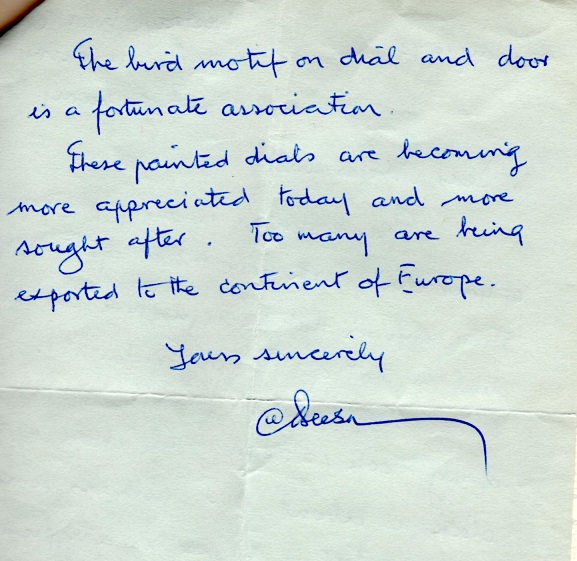 The bird motif on dial and door
is a fortunate association.
These painted dials are becoming
more appreciated today and more
sought after. Too many are being
exported to the continent of Europe.
Yours sincerely